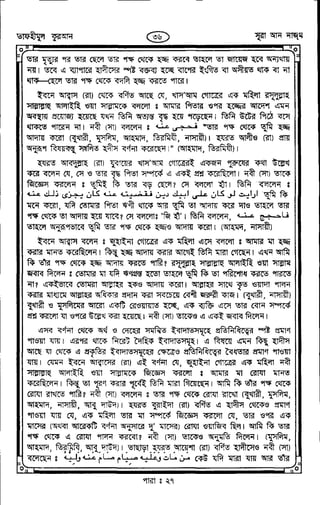 তাফহীমুল কুরআন
৩৬
সূরা আন নাজম
তার মৃত্যুর পর তার ছেলে তার পক্ষ থেকে হজ্জ করবে তাহলে তা জায়েজ হবে অন্যথায়
নয়। তবে এ ব্যাপারে হাদীসের স্পষ্ট বক্তব্য হচ্ছে বাপের ইংগিত বা অসীয়ত থাক বা না
থাক—ছেলে তার পক্ষ থেকে বদলি হজ্জ করতে পারে।
ইবনে আব্বাস (রা) থেকে বর্ণিত আছে যে, খাস'আম গোত্রের এক মহিলা রসূলুল্লাহ
সাল্লাল্লাহু আলাইহি ওয়া সাল্লামকে বললো : আমার পিতার ওপর হজ্জের আদেশ এমন
অবস্থায় প্রযোজ্য হয়েছে যখন তিনি অত্যন্ত বৃদ্ধ হয়ে পড়েছেন। তিনি উটের পিঠে বসে
থাকতে পারেন না। নবী (সা) বললেন : فحجى عنه "তার পক্ষ থেকে তুমি হজ্জ
আদায় করো (বুখারী, মুসলিম, আহমাদ, তিরমিযী, নাসায়ী)। হযরত আলীও (রা) প্রায়
অনুরূপ বিষয়বস্তু সম্বলিত হাদীস বর্ণনা করেছেন।" (আহমাদ, তিরমিযী)।
হযরত আবদুল্লাহ (রা) যুবায়ের খাস'আম গোত্রেরই একজন পুরুষের কথা উল্লেখ
করে বলেন যে, সে ও তার বৃদ্ধ পিতা সম্পর্কে এ একই প্রশ্ন করেছিলো। নবী (সা) তাকে
জিজ্ঞেস করলেন : তুমিই কি তার বড় ছেলে। সে বললো হাঁ। তিনি বললেন :
ارأيت لو كان على ابيك دين فقضيته عنه كان يجزى ذلك عنه তুমি কি
মনে করো, যদি তোমার পিতা ঋণী থাকে আর তুমি তা আদায় করে দাও তাহলে তার
পক্ষ থেকে তা আদায় হয়ে যাবে? সে বললোঃ 'জি হাঁ'। তিনি বললেন, فاحجج عنه
তাহলে অনুরূপভাবে তুমি তার পক্ষ থেকে হজ্জও আদায় করো। (আহমাদ, নাসায়ী)
ইবনে আব্বাস বলেন : জুহাইনা গোত্রের এক মহিলা এসে বললো : আমার মা হজ্জ
করার মানত করেছিলেন। কিন্তু হজ্জ আদায় করার আগেই তিনি মারা গেছেন। এখন আমি
কি তাঁর পক্ষ থেকে হজ্জ আদায় করতে পারি? রসূলুল্লাহ সাল্লাল্লাহু আলাইহি ওয়া সাল্লাম
জবাব দিলেন : তোমার মা যদি ঋণগ্রস্ত হতো তাহলে তুমি কি তা পরিশোধ করতে পারতে
না? একইভাবে তোমরা আল্লাহর হকও আদায় করো। আল্লাহর সাথে কৃত ওয়াদা পালন
করার মাধ্যমে আল্লাহর অধিকার প্রদান করা সবচেয়ে বেশী জরুরী কাজ। (বুখারী, নাসায়ী)
বুখারী ও মুসনাদে আহমাদে আরো একটি রেওয়ায়াত হচ্ছে, এক ব্যক্তি এসে তার বোন সম্পর্কে
প্রশ্ন করলো যা ওপরে উল্লেখ করা হয়েছে। নবী (সা) তাকেও এ একই জবাব দিলেন।
এসব বর্ণনা থেকে অর্থ ও দেহের সমন্বিত ইবাদাতসমূহে প্রতিনিধিত্বের স্পষ্ট প্রমাণ
পাওয়া যায়। এরপর থাকে নিরেট দৈহিক ইবাদাতসমূহ। এ বিষয়ে এমন কিছু হাদীস
আছে যা থেকে এ প্রকৃতির ইবাদাতসমূহের ক্ষেত্রেও প্রতিনিধিত্বের বৈধতার প্রমাণ পাওয়া
যায়। যেমন ইবনে আব্বাসের (রা) এই বর্ণনা যে, জুহাইনা গোত্রের এক মহিলা নবী
সাল্লাল্লাহু আলাইহি ওয়া সাল্লামকে জিজ্ঞেস করলো : আমার মা রোযা মানত
করেছিলেন। কিন্তু তা পূরণ করার পূর্বেই তিনি মারা গিয়েছেন। আমি কি তাঁর পক্ষ থেকে
রোযা রাখতে পারি? নবী (সা) বললেন : তার পক্ষ থেকে রোযা রাখো (বুখারী, মুসলিম,
আহমাদ, নাসায়ী, আবু দাউদ)। হযরত বুরাইদা (রা) বর্ণিত এ হাদীস থেকেও প্রমাণ
পাওয়া যায় যে, এক মহিলা তার মা সম্পর্কে জিজ্ঞেস করলো যে, তার ওপর এক
মাসের (অথবা আরেকটি বর্ণনা অনুসারে দু' মাসের) রোযা ওয়াজিব ছিল। আমি কি তার
পক্ষ থেকে এ রোযা পালন করবো? নবী (সা) তাকেও অনুমতি দিলেন। (মুসলিম,
আহমাদ, তিরমিযী, আবু দাউদ)। তাছাড়া হযরত আয়েশা (রা) বর্ণিত এ হাদীসেও নবী (সা)
বলেছেন : من مات وعليه صيام صام عنه وليه কেউ যদি মারা যায় আর তার
পারা : ২৭